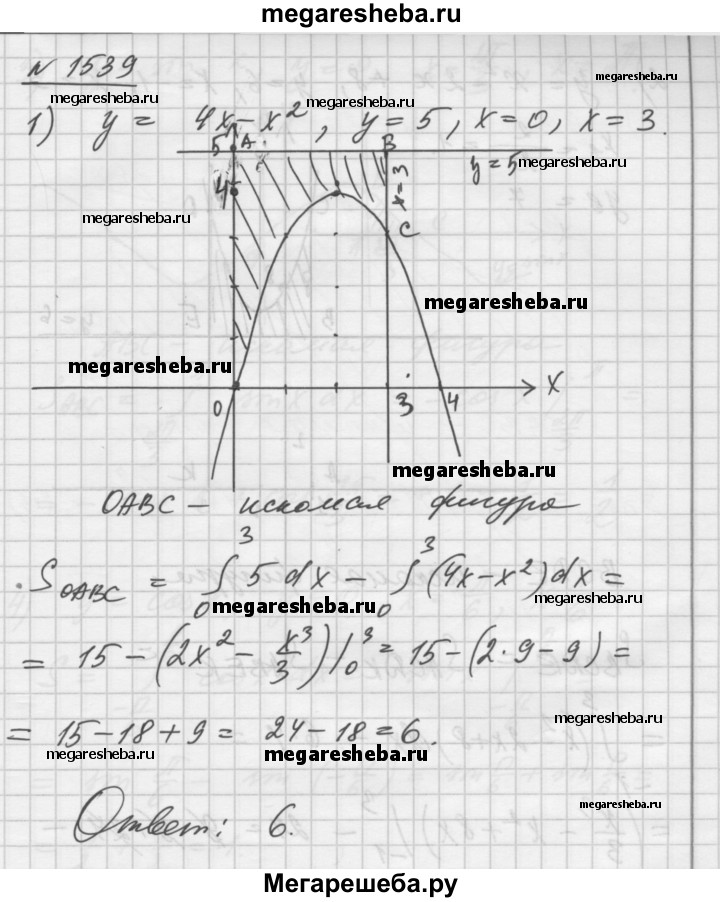 megaresheba.ru
N 1539
megaresheba.ru
megaresheba.ru
megaresheba.ru
1) y = 4x - x², y = 5, x = 0, x = 3.
5 A B
y = 5
megaresheba.ru
4
x = 3
megaresheba.ru
C
megaresheba.ru
megaresheba.ru
0 3 4 x
megaresheba.ru
OABC - искомая фигура
S_OABC = ∫₀³ 5 dx - ∫₀³ (4x - x²) dx =
megaresheba.ru
megaresheba.ru
= 15 - (2x² - x³/3) |₀³ = 15 - (2·9 - 9) =
= 15 - 18 + 9 = 24 - 18 = 6.
megaresheba.ru
megaresheba.ru
megaresheba.ru
Ответ: 6.
megaresheba.ru
Мегарешеба.ру